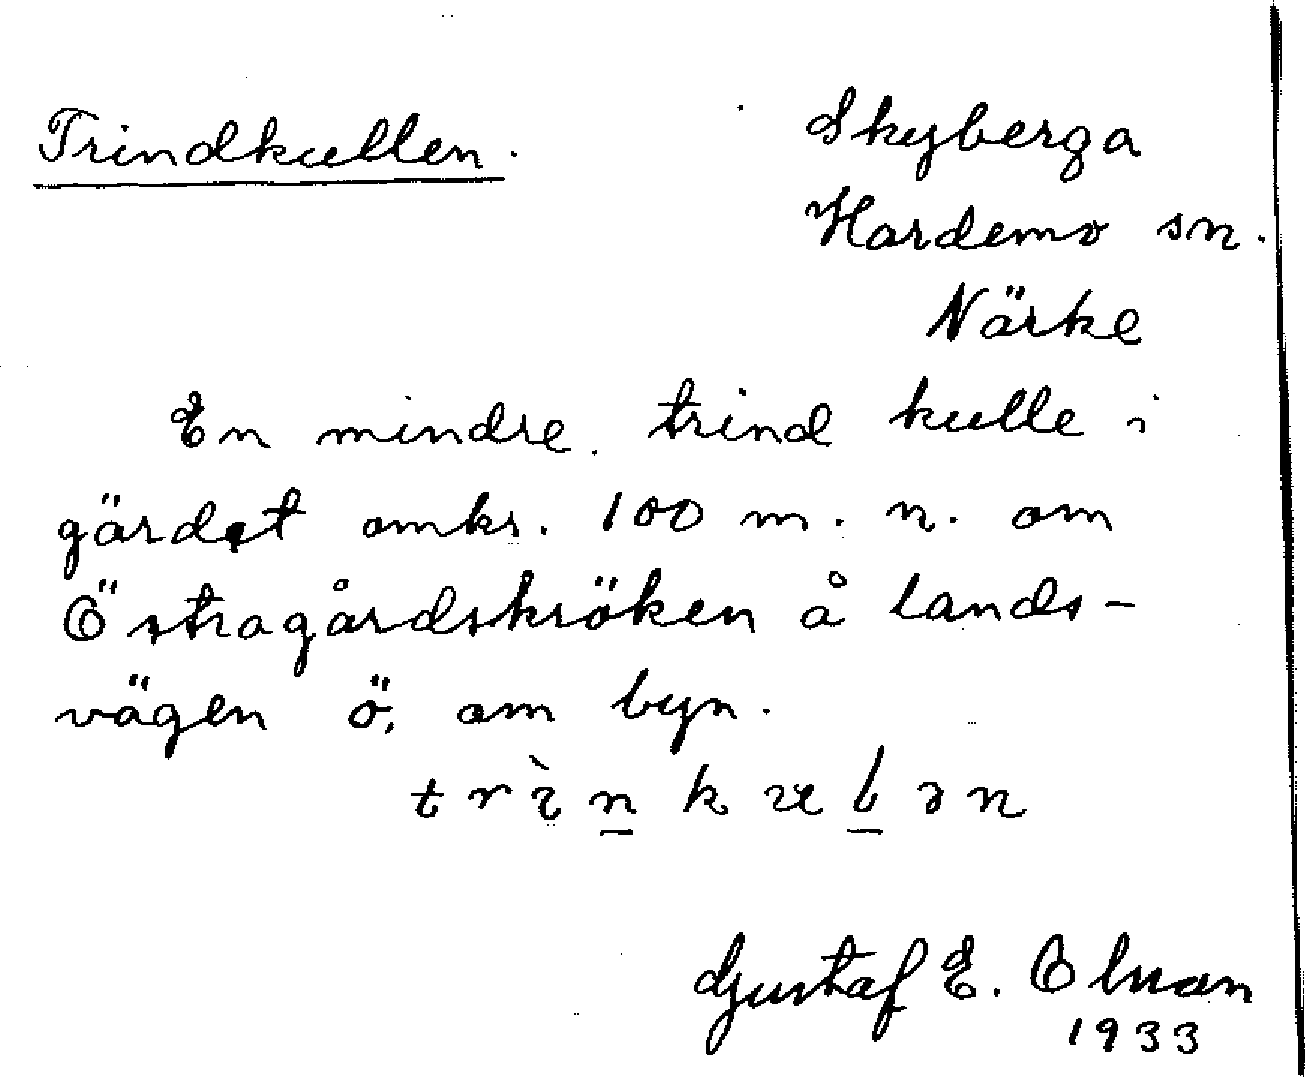 Trindkullen.
Skyberga
Hardemo sn.
Närke
En mindre trind kulle i
gärdet omkr. 100 m. n. om
Östragårdskröken å lands-
vägen ö. om byn.
Gustaf E. Olsson
1933